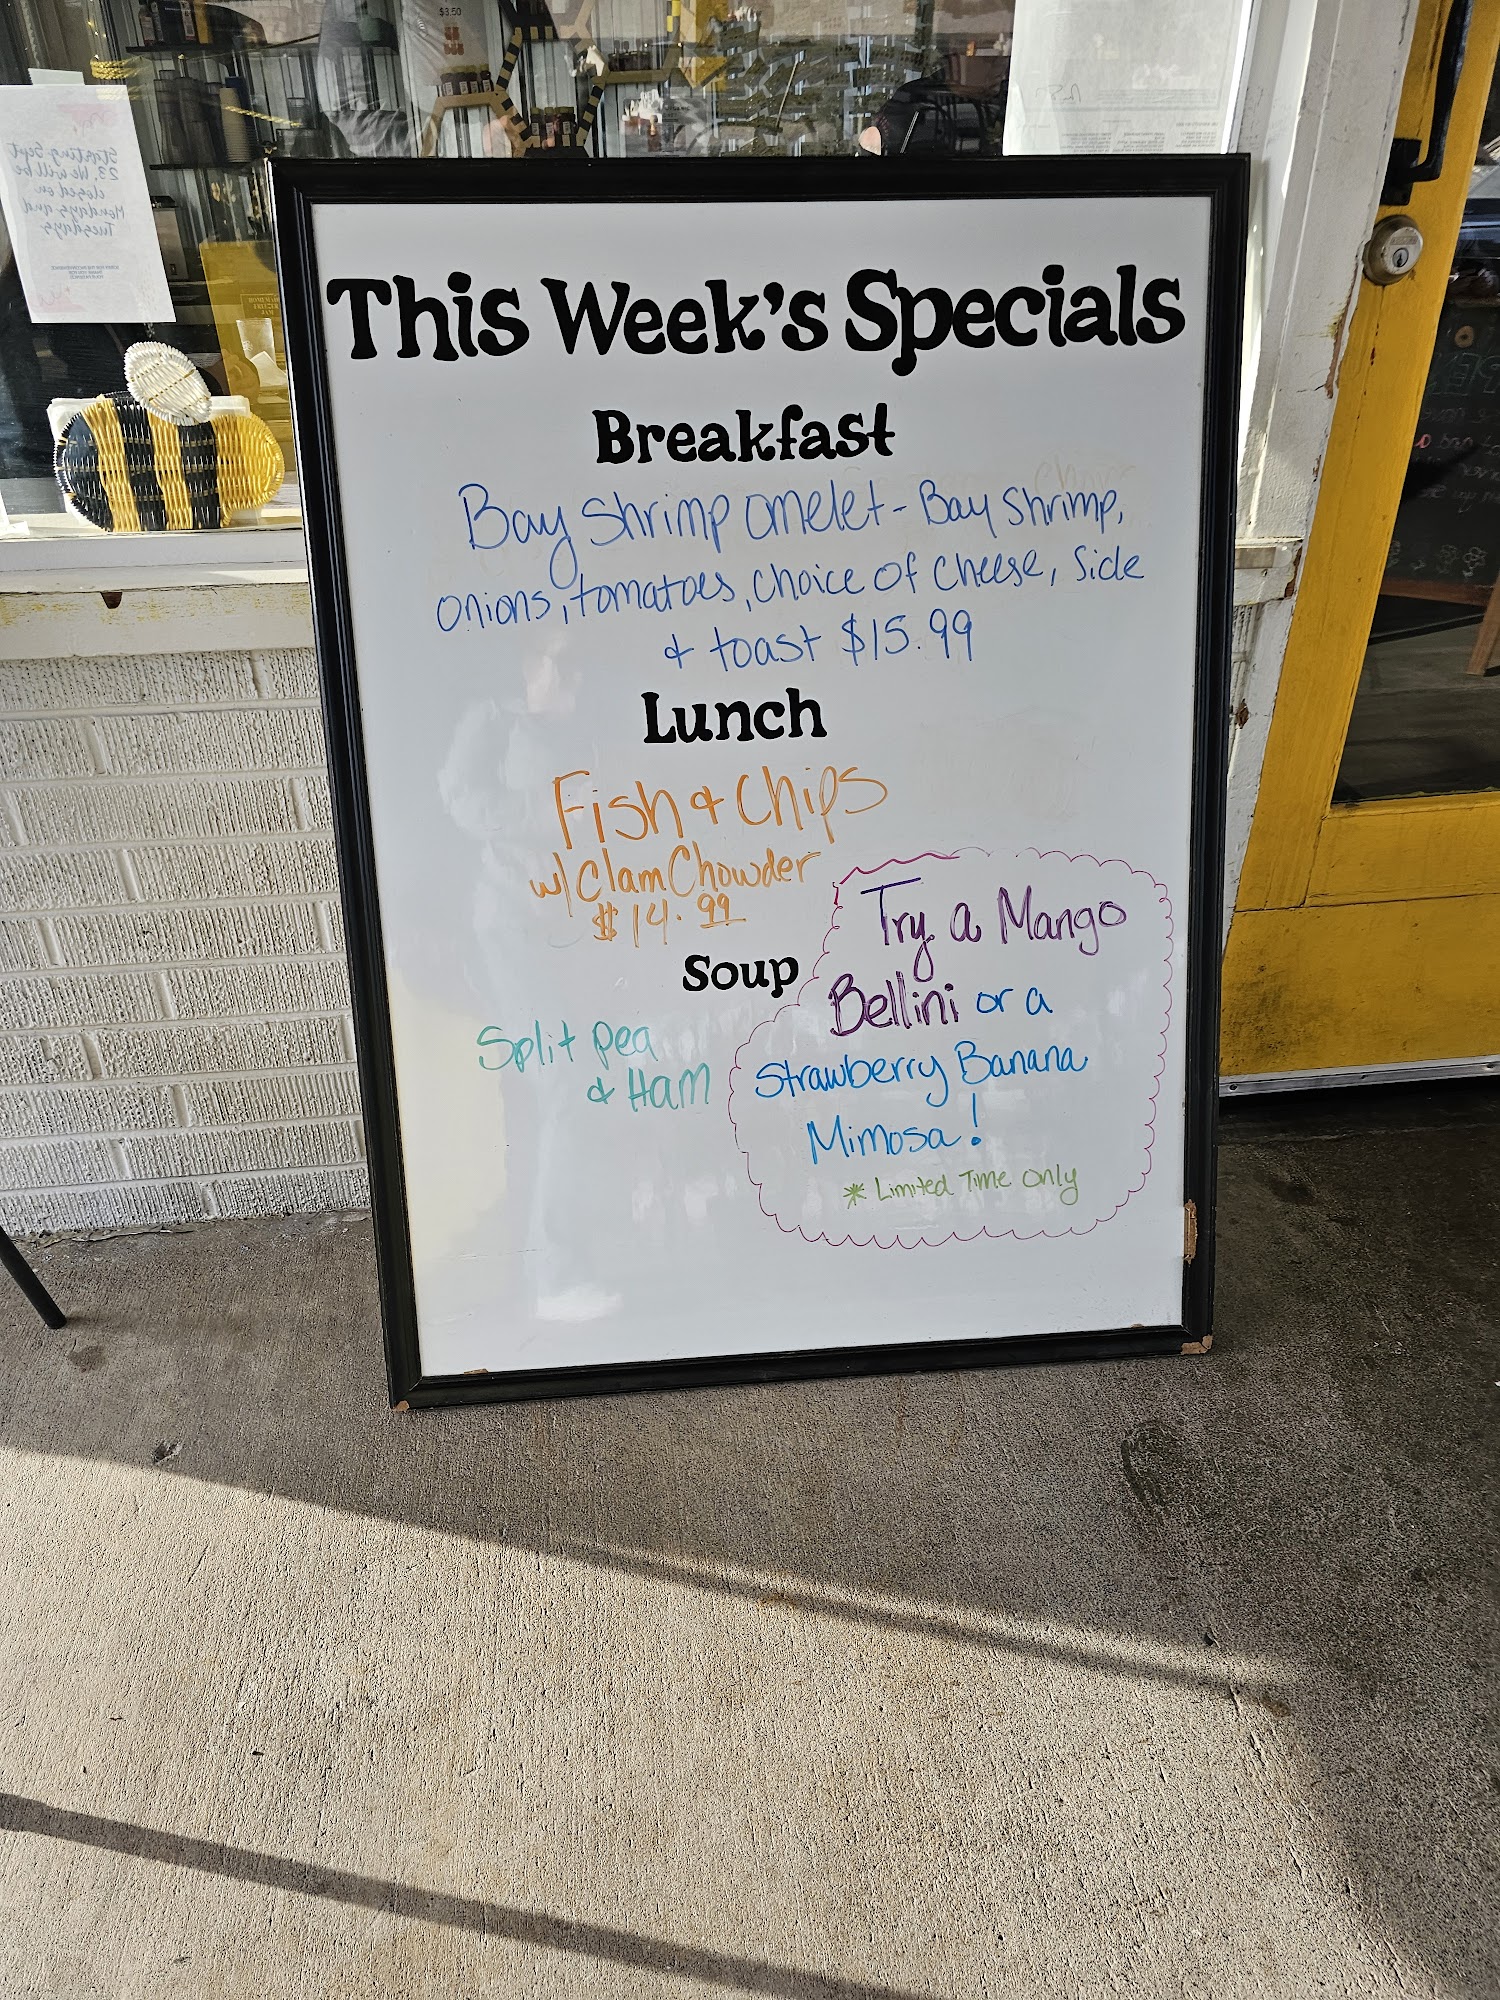 $3.50
Starting Sept
23, We will be
closed on
Mondays and
Tuesdays
This Week's Specials
Breakfast
Bay Shrimp omelet - Bay shrimp,
onions, tomatoes, choice of cheese, side
& toast $15.99
Lunch
Fish & Chips
w/ Clam Chowder
$14.99
Soup
Split pea
& Ham
Try a Mango
Bellini or a
Strawberry Banana
Mimosa!
* Limited Time Only